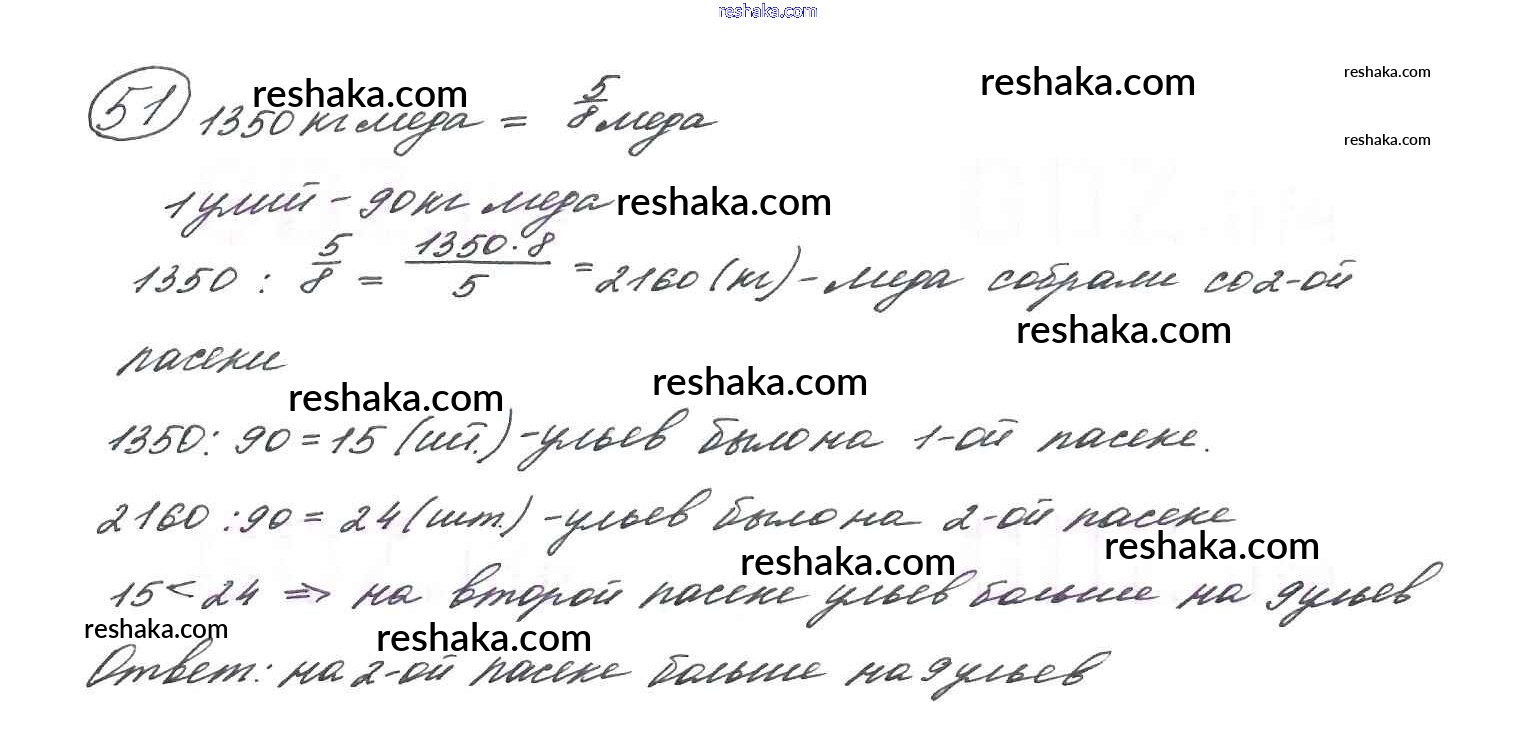 reshaka.com
reshaka.com
reshaka.com
reshaka.com
51 1350 кг меда = 5/8 меда
reshaka.com
1 улий - 90 кг меда
reshaka.com
1350 : 5/8 = 1350·8/5 = 2160 (кг) - меда собрали со 2-ой
reshaka.com
пасеки
reshaka.com
reshaka.com
1350 : 90 = 15 (шт.) - ульев было на 1-ой пасеке.
2160 : 90 = 24 (шт.) - ульев было на 2-ой пасеке
reshaka.com
reshaka.com
15 < 24 => на второй пасеке ульев больше на 9 ульев
reshaka.com
reshaka.com
Ответ: на 2-ой пасеке больше на 9 ульев